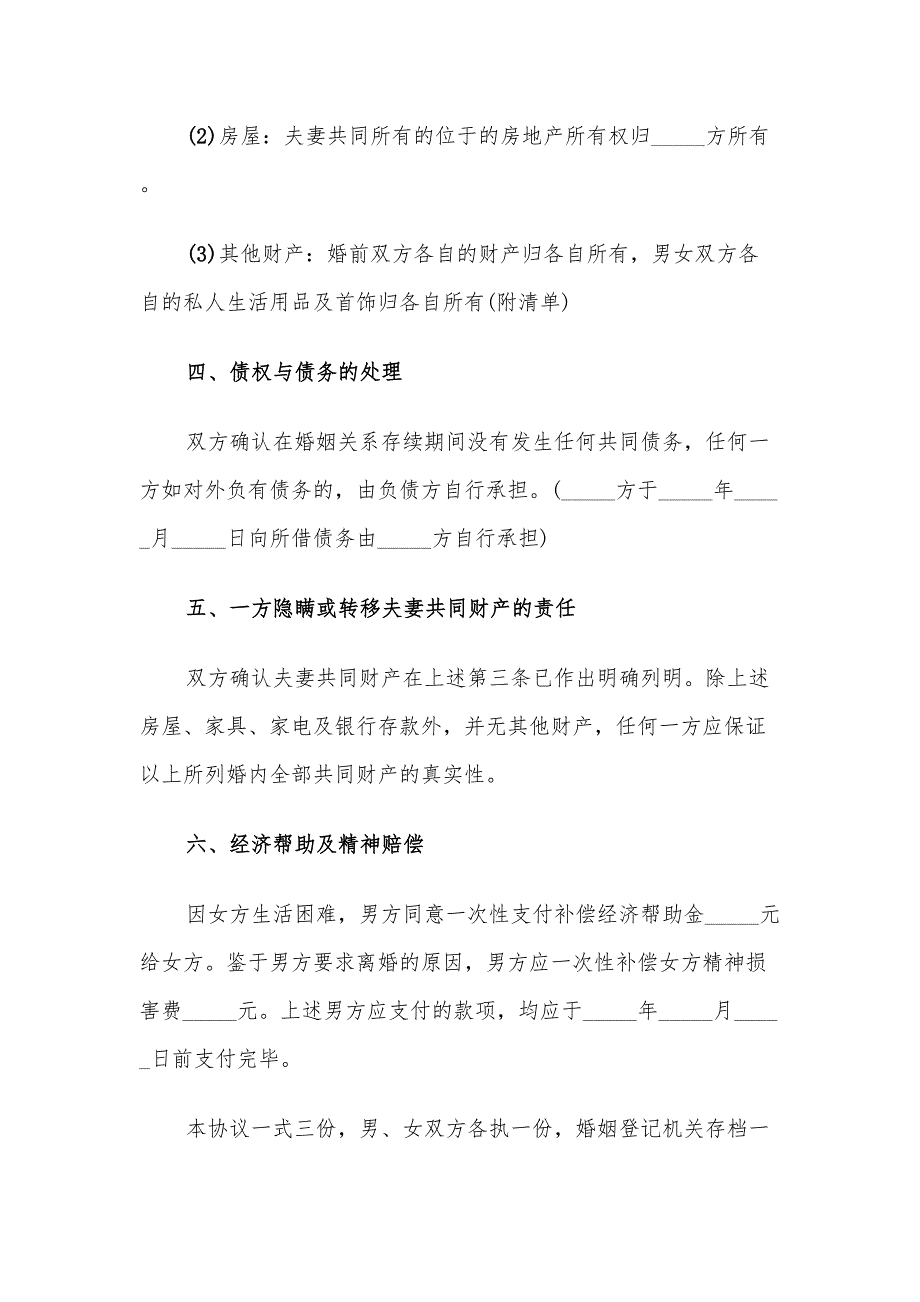 (2)房屋：夫妻共同所有的位于的房地产所有权归_____方所有
。
(3)其他财产：婚前双方各自的财产归各自所有，男女双方各
自的私人生活用品及首饰归各自所有(附清单)
四、债权与债务的处理
双方确认在婚姻关系存续期间没有发生任何共同债务，任何一
方如对外负有债务的，由负债方自行承担。(_____方于_____年____
_月_____日向所借债务由_____方自行承担)
五、一方隐瞒或转移夫妻共同财产的责任
双方确认夫妻共同财产在上述第三条已作出明确列明。除上述
房屋、家具、家电及银行存款外，并无其他财产，任何一方应保证
以上所列婚内全部共同财产的真实性。
六、经济帮助及精神赔偿
因女方生活困难，男方同意一次性支付补偿经济帮助金_____元
给女方。鉴于男方要求离婚的原因，男方应一次性补偿女方精神损
害费_____元。上述男方应支付的款项，均应于_____年_____月____
_日前支付完毕。
本协议一式三份，男、女双方各执一份，婚姻登记机关存档一